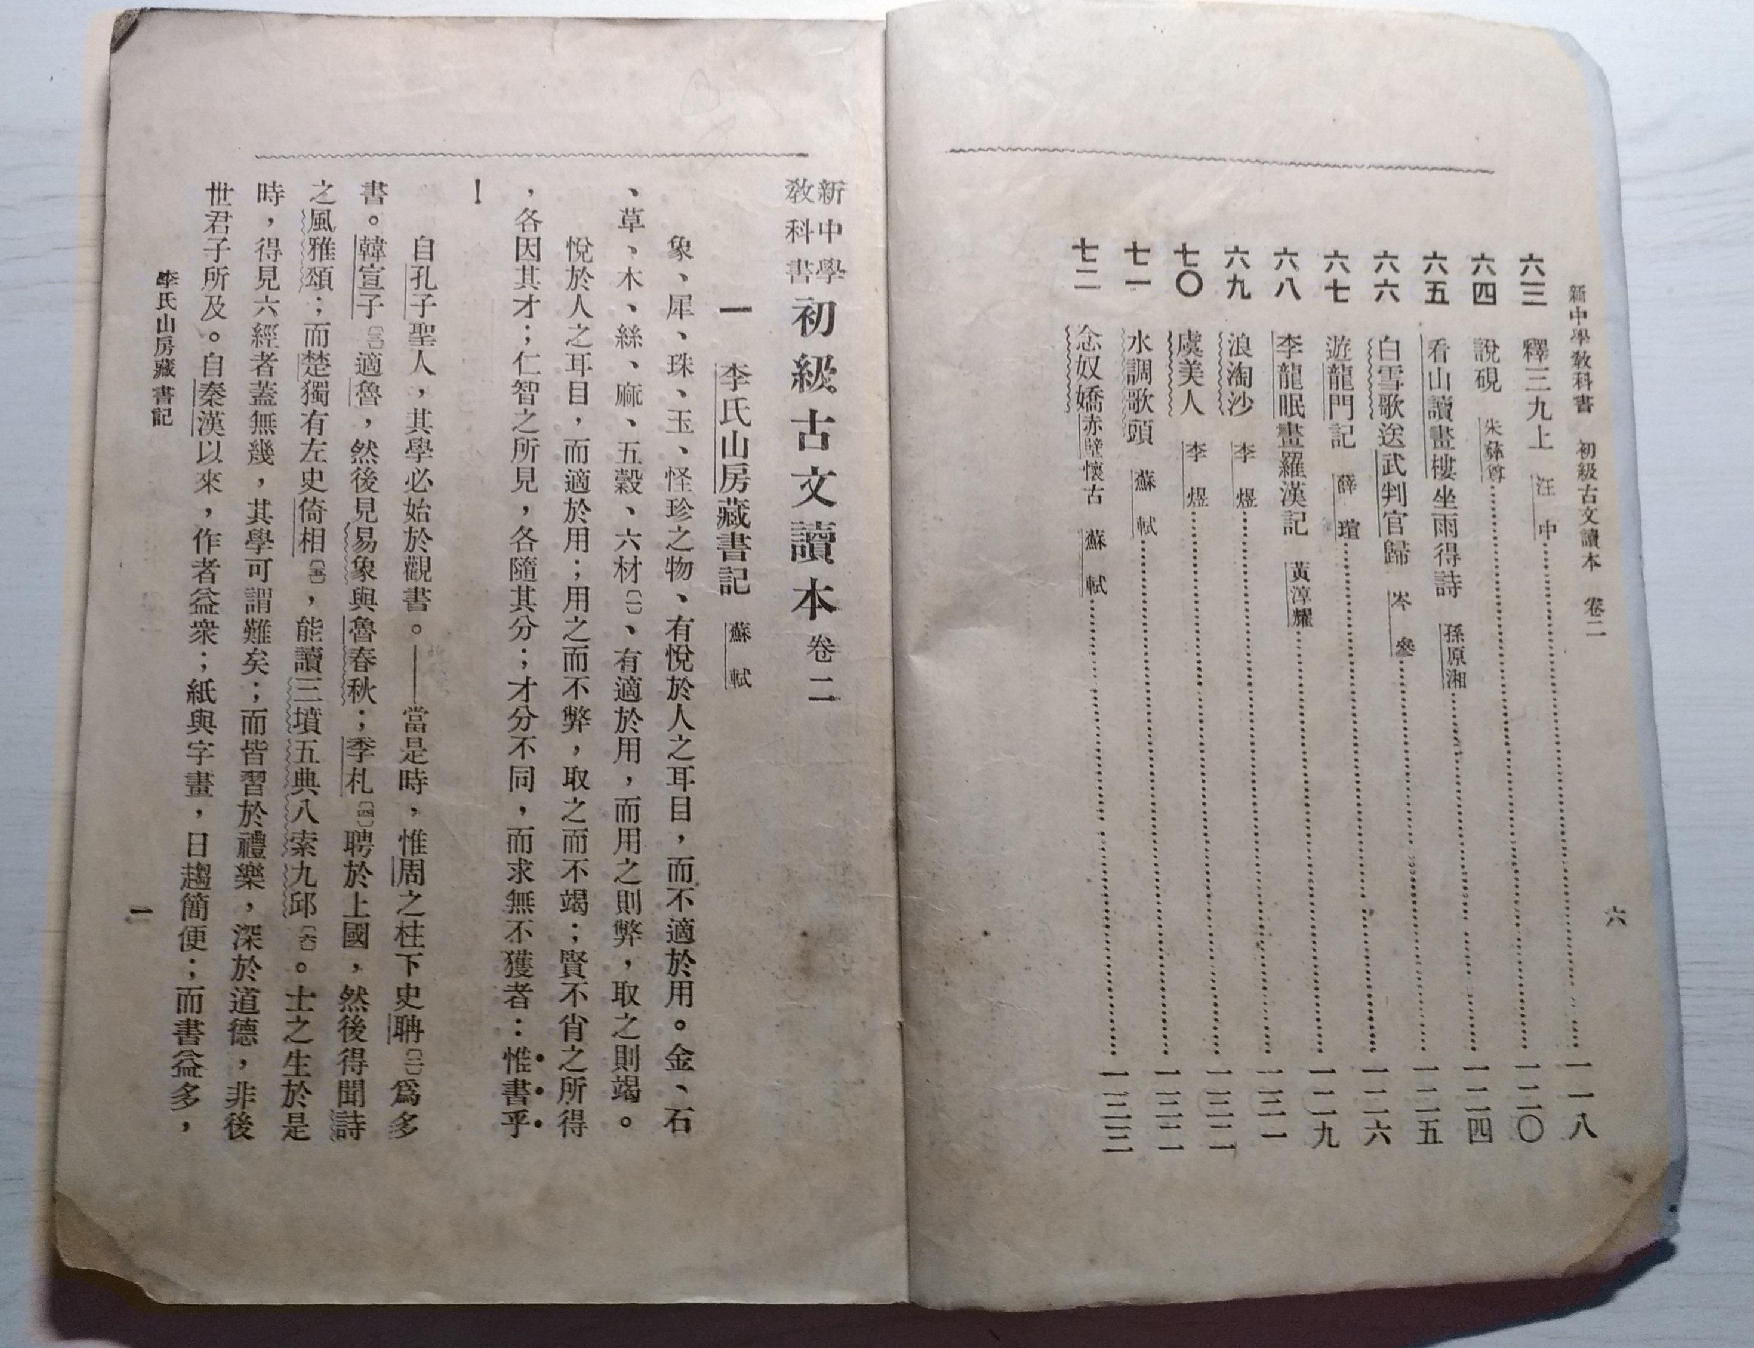 新中學教科書 初級古文讀本 卷二
六
六三 釋三九上 汪中 一一八
六四 說硯 朱彝尊 一二〇
六五 看山讀畫樓坐雨得詩 孫原湘 一二四
六六 白雪歌送武判官歸 岑參 一二五
六七 遊龍門記 薛瑄 一二六
六八 李龍眠畫羅漢記 黃淳耀 一二九
六九 浪淘沙 李煜 一三一
七〇 虞美人 李煜 一三二
七一 水調歌頭 蘇軾 一三二
七二 念奴嬌赤壁懷古 蘇軾 一三三
新中學教科書 初級古文讀本 卷二
一 李氏山房藏書記 蘇軾
象、犀、珠、玉、怪珍之物、有悅於人之耳目，而不適於用。金、石
、草、木、絲、麻、五穀、六材〔一〕、有適於用，而用之則弊，取之則竭。
悅於人之耳目，而適於用；用之而不弊，取之而不竭；賢不肖之所得
，各因其才；仁智之所見，各隨其分；才分不同，而求無不獲者：惟書乎
！
自孔子聖人，其學必始於觀書。——當是時，惟周之柱下史聃〔二〕爲多
書。韓宣子〔三〕適魯，然後見易象與魯春秋；季札〔四〕聘於上國，然後得聞詩
之風雅頌；而楚獨有左史倚相〔五〕，能讀三墳五典八索九邱〔六〕。士之生於是
時，得見六經者蓋無幾，其學可謂難矣；而皆習於禮樂，深於道德，非後
世君子所及。自秦漢以來，作者益衆；紙與字畫，日趨簡便；而書益多，
李氏山房藏書記
一